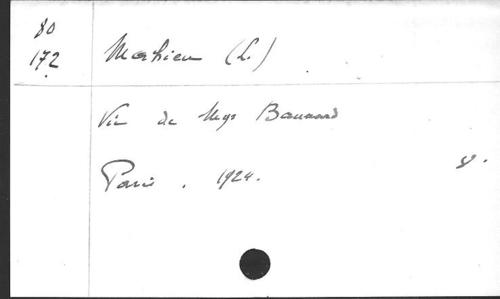 80
172
Mahieu (L.)
Vie de Mgr Baunard
Paris. 1924.
8°.